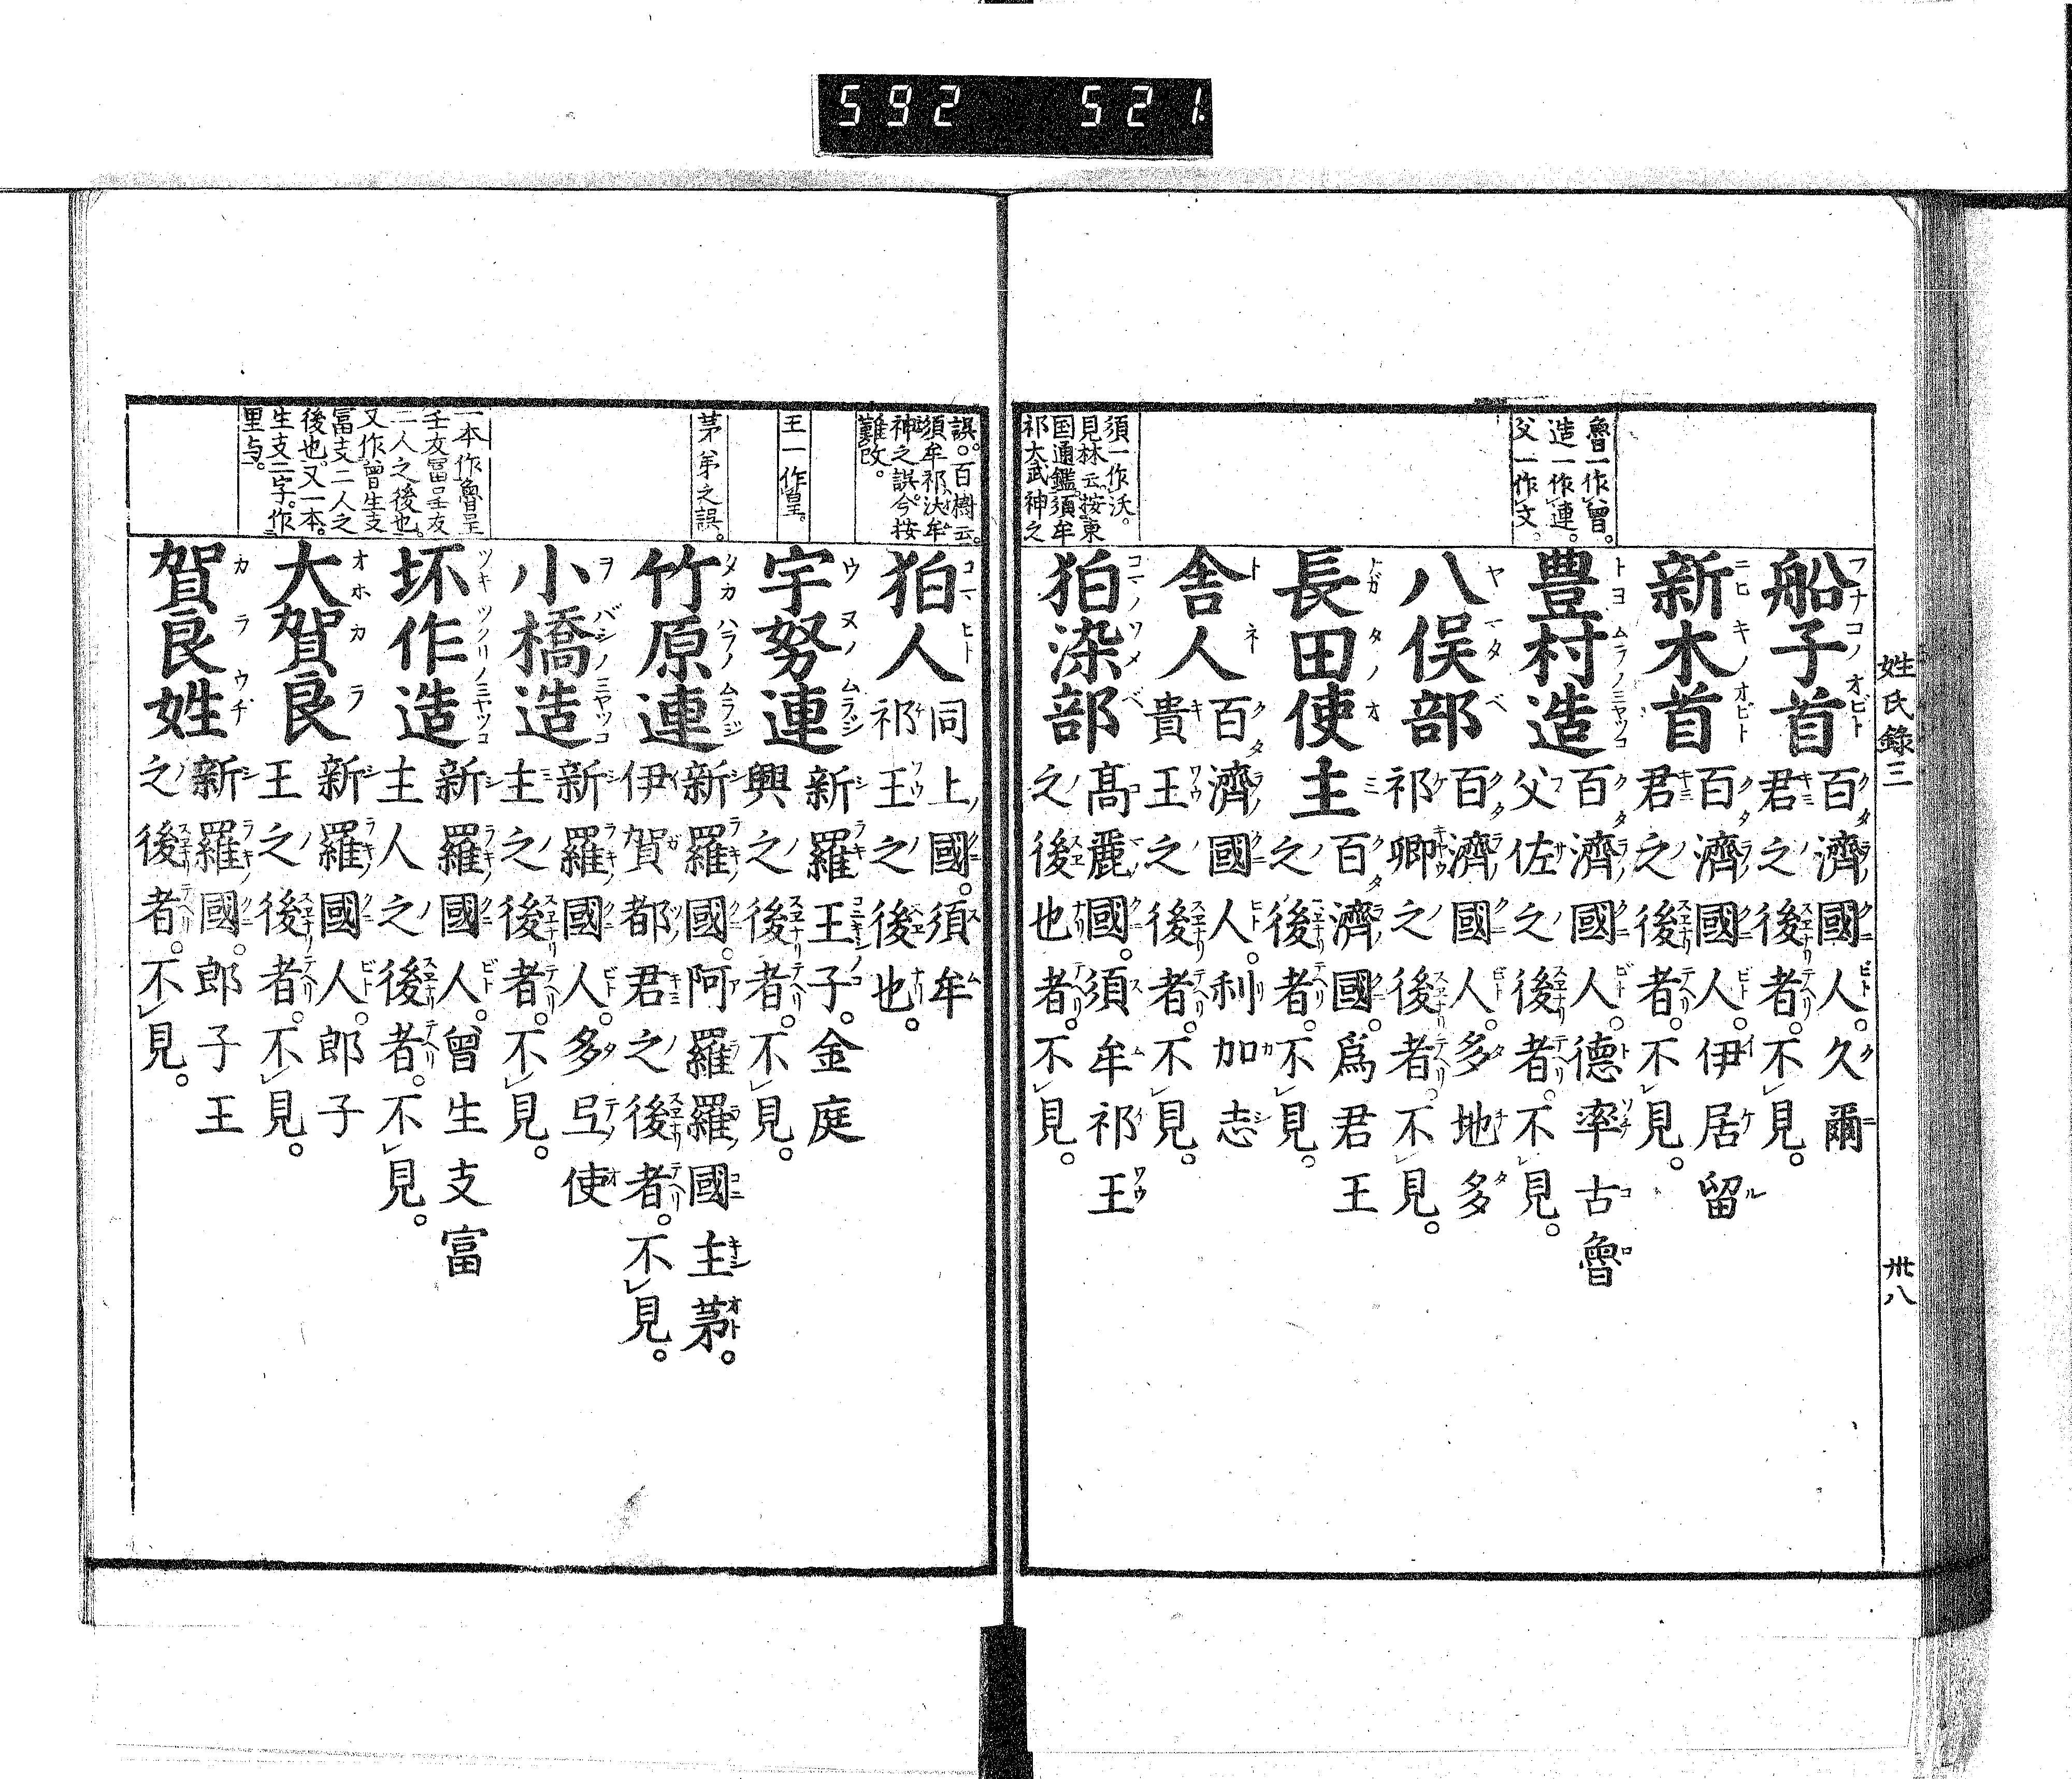 592 521
姓氏錄三
卅八
魯一作曾。
造一作連。
父一作文。
須一作沃。
見林云按東
国通鑑須牟
祁大武神之
船子首 百濟國人。久爾
君之後者。不見。
新木首 百濟國人。伊居留
君之後者。不見。
豊村造 百濟國人。德率古魯
父佐之後者。不見。
八俣部 百濟國人。多地多
祁卿之後者。不見。
長田使主 百濟國。爲君王
之後者。不見。
舎人 百濟國人。利加志
貴王之後者。不見。
狛染部 髙麗國。須牟祁王
之後也者。不見。
誤。百樹云。
須牟祁汰牟
神之誤今按
難改。
王一作皇。
茅弟之誤。
一本作魯呈
二人之後也。
又作曾生支
冨支二人之
後也。又一本。
生支二字。作
里与。
狛人 同上國。須牟
祁王之後也。
宇努連 新羅王子。金庭
興之後者。不見。
竹原連 新羅國。阿羅羅國主茅。
伊賀都君之後者。不見。
小橋造 新羅國人。多弖使
主之後者。不見。
坏作造 新羅國人。曾生支富
主人之後者。不見。
大賀良 新羅國人。郎子
王之後者。不見。
賀良姓 新羅國。郎子王
之後者。不見。